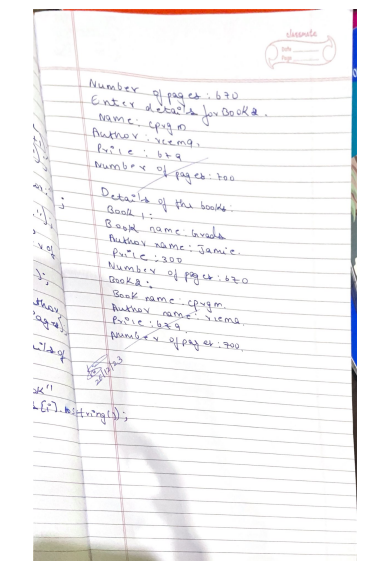 classmate
Date
Page
Number of pages : 670
Enter details for Book 2.
Name : cprgm
Author : reema.
Price : 679
Number of pages : 700
Details of the books.
Book 1 :
Book name :
Author name : Jamie.
Price : 300
Number of pages : 670
Book 2 :
Book name : cprgm.
Author name : riema.
Price : 679.
Number of pages : 700.
ok"
[i].toString());